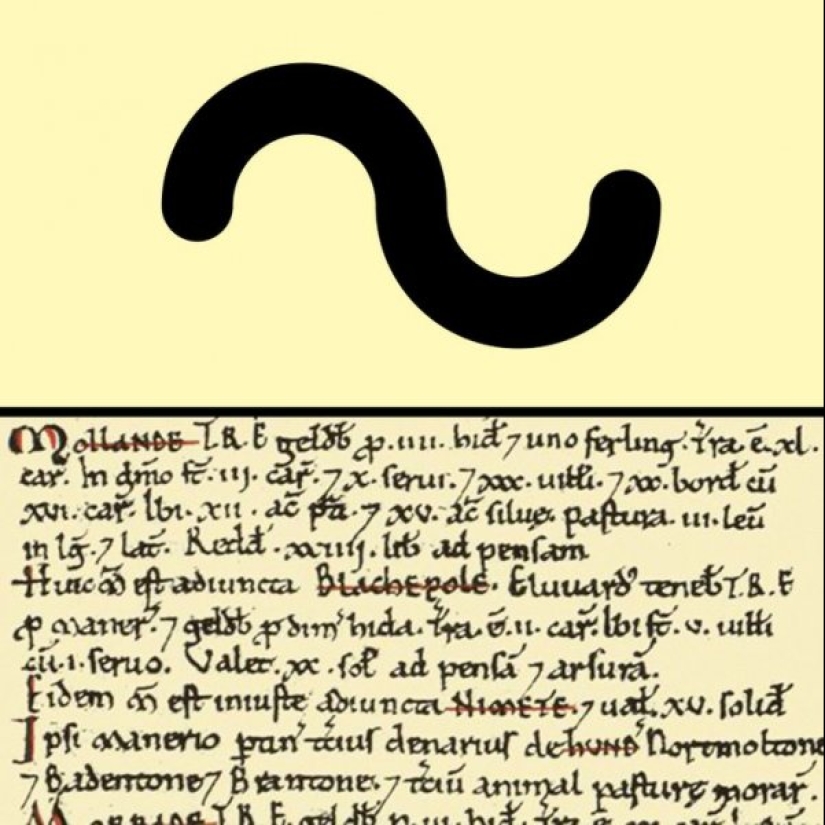 ~
Mollande T.R.E geldb̄ ꝓ .iiii. hid̄ ⁊ uno ferling. T̄ra ē .xl.
car̄. In dn̄io st̄ .iii. car̄. ⁊ x. serui. ⁊ xxx. uilli. ⁊ xx. bord̄ cū
xvi. car̄. Ibi .xii. ac̄ p̄ti. ⁊ xv. ac̄ siluę. pastura .iii. leū
in lḡ. ⁊ lat̄. Redd̄ .xxiiii. lib̄ ad pensam
Huic m̄ est adiuncta Blachepole. Eluuard' teneb̄ T.R.E
ꝓ maner̄. ⁊ geldb̄ ꝓ dim̄ hida. T̄ra ē .ii. car̄. Ibi st̄ .v. uilli
cū .i. seruo. Valet .xx. sol̄ ad pensā ⁊ arsurā.
Eidem m̄ est iniuste adiuncta Nimete. ⁊ ual̄ .xv. solid̄
Ipsi manerio ptin' t̄cius denarius de hund' Nortmoltone
⁊ Badentone ⁊ Brantone. ⁊ t̄ciū animal pasturę morar̄.